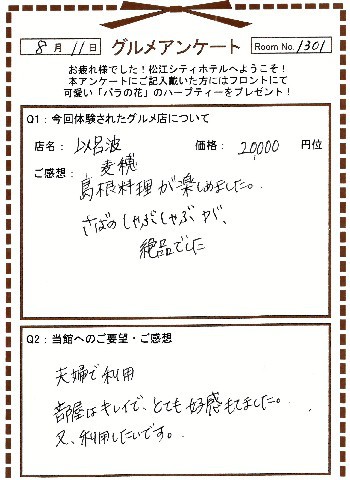 8月11日 グルメアンケート Room No. 1301
お疲れ様でした！松江シティホテルへようこそ！
本アンケートにご記入戴いた方にはフロントにて
可愛い「バラの花」のハーブティーをプレゼント！
Q1：今回体験されたグルメ店について
店名： 以呂波 価格： 20,000 円位
麦穂
ご感想：
島根料理が楽しめました。
さばのしゃぶしゃぶが、
絶品でした
Q2：当館へのご要望・ご感想
夫婦で利用
部屋はキレイで、とても好感もてました。
又、利用したいです。